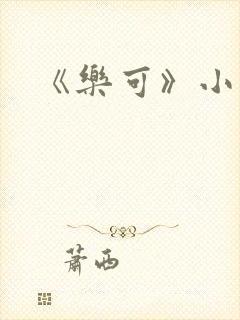 《樂可》小
蕭西